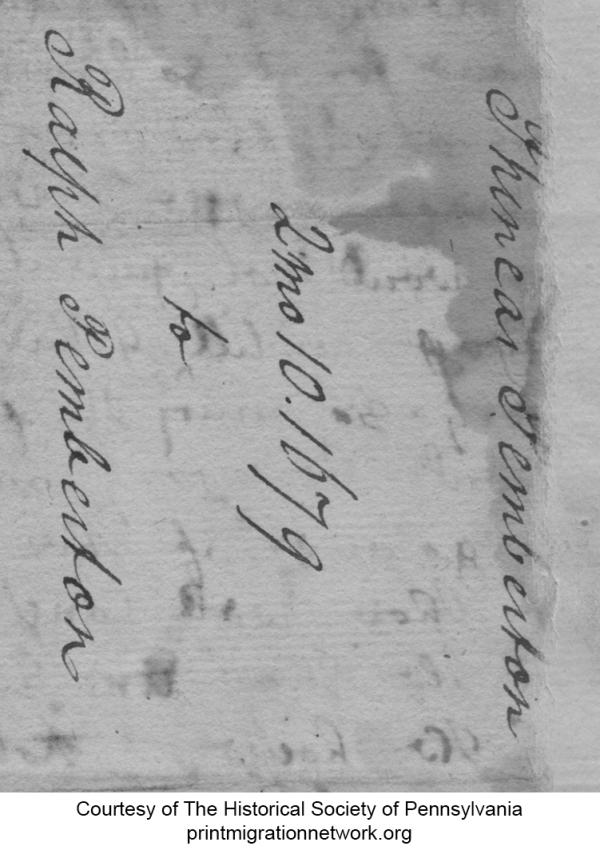 Phineas Pemberton
2mo 10. 1679
to
Ralph Pemberton
Courtesy of The Historical Society of Pennsylvania
printmigrationnetwork.org